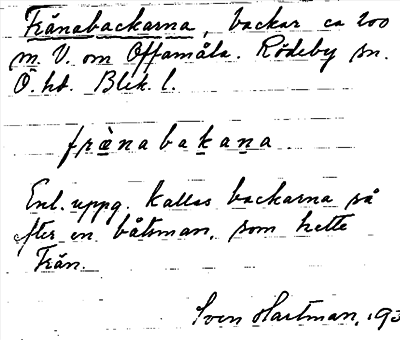 Frånabackarna, backar ca 200
m. V. om Offamåla. Rödeby sn.
Ö. hd. Blek. l.
frànabakana.
Enl. uppg. kallas backarna så
efter en båtsman, som hette
Från.
Sven Hartman, 193